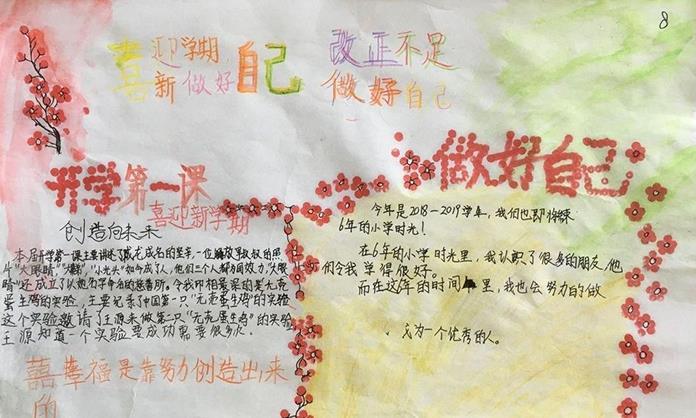 8
喜迎学期
新做好自己
改正不足
做好自己
开学第一课
喜迎新学期
创造向未来
本届开学第一课主要讲述了成龙成名的坚辛,一位解放军叔叔的照
片"大眼睛""大鼻涕""小光头"如今成了人,他们三个人都为国效力,"大眼
睛"还成立了以她名字命名的慈善所。令我印相最深的是无壳
蛋生鸡的实验,主要记录了中国第一只"无壳蛋生鸡"的实验
这个实验邀请了王源来做第一只"无壳蛋生鸡"的实验
王源知道一个实验要成功需要很多次。
幸福是靠努力创造出来
的
做好自己
今年是2018-2019学年,我们也即将
6年的小学时光!
在6年的小学时光里,我认识了很多的朋友,他
们令我学得很好。
而在这6年的时间里,我也会努力的做
成为一个优秀的人。